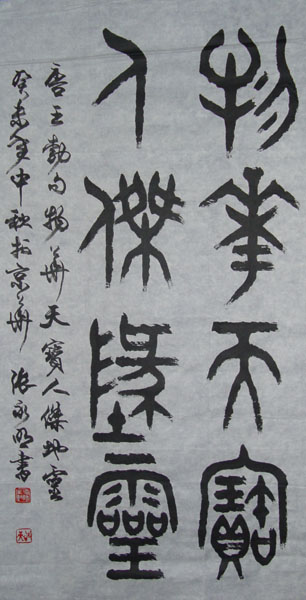 物華天寶
人傑地靈
唐王勃句物華天寶人傑地靈
癸未年中秋於京華張永明書